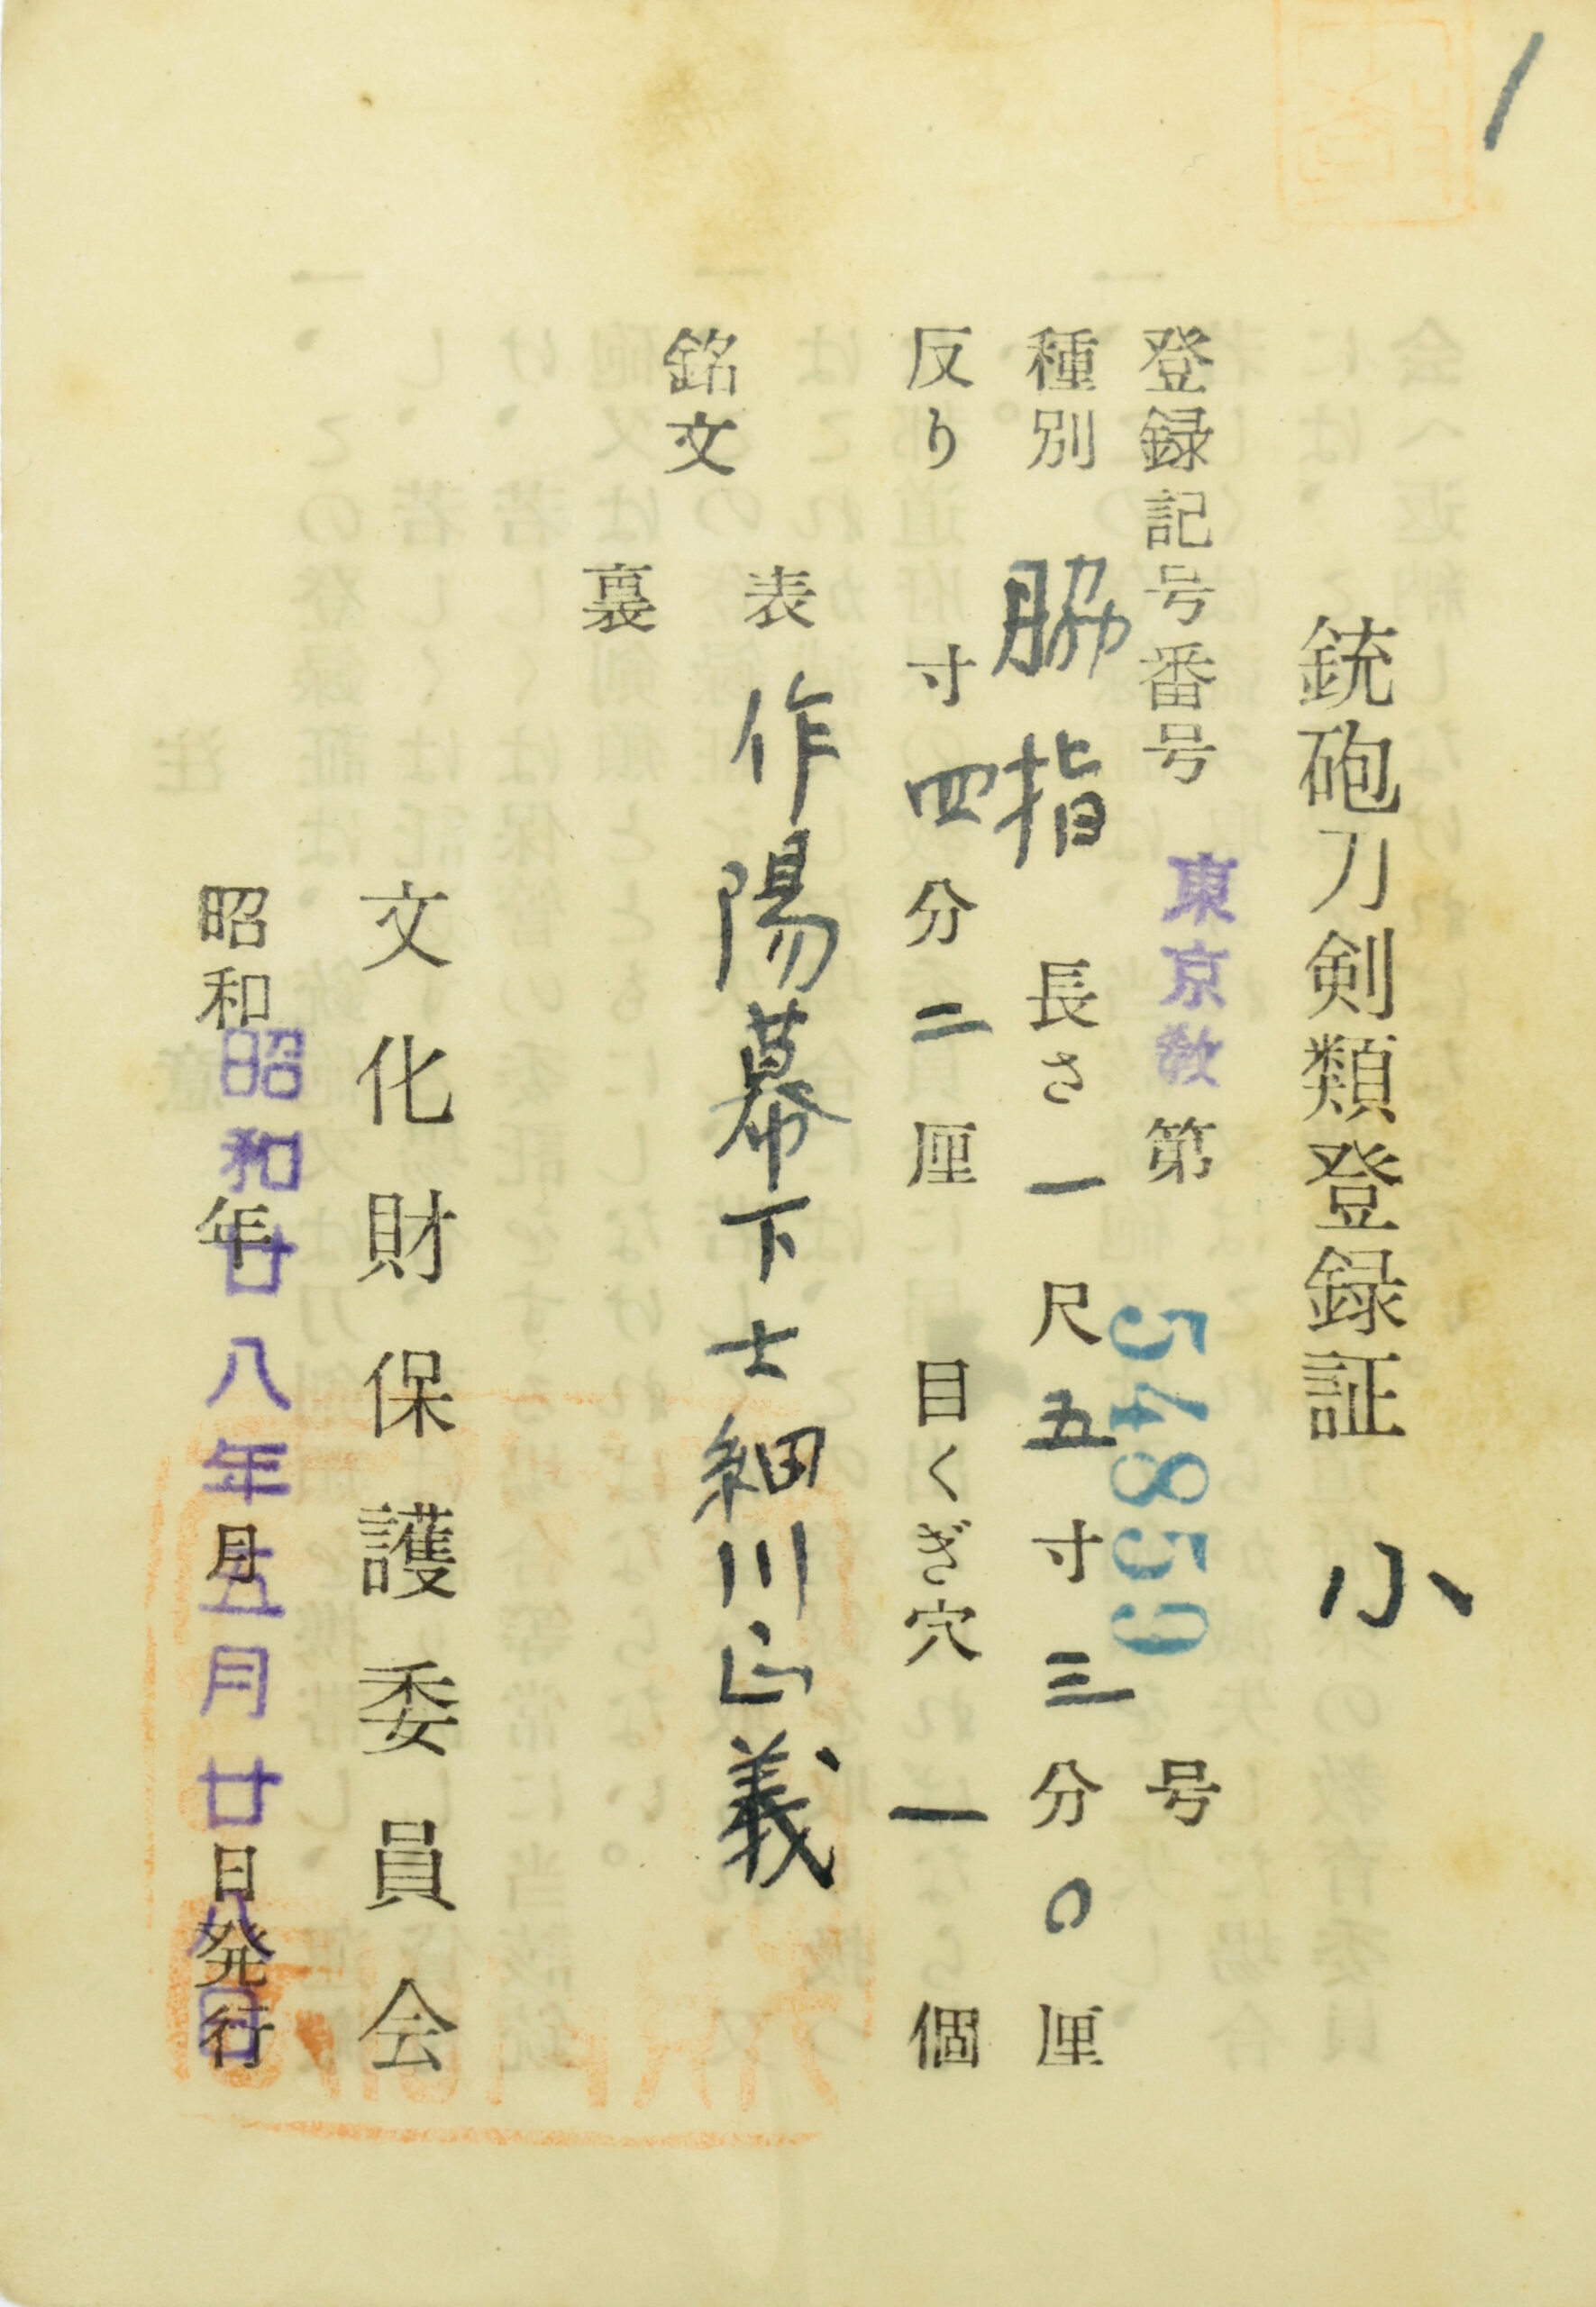 銃砲刀剣類登録証 小
登録記号番号 東京教 第 54859 号
種別 脇指 長さ 一尺五寸三分〇厘
反り 寸四分二厘 目くぎ穴 一個
銘文
表 作陽幕下士細川正義
裏
文化財保護委員会
昭和 年 月 日発行
昭和廿八年五月廿八日